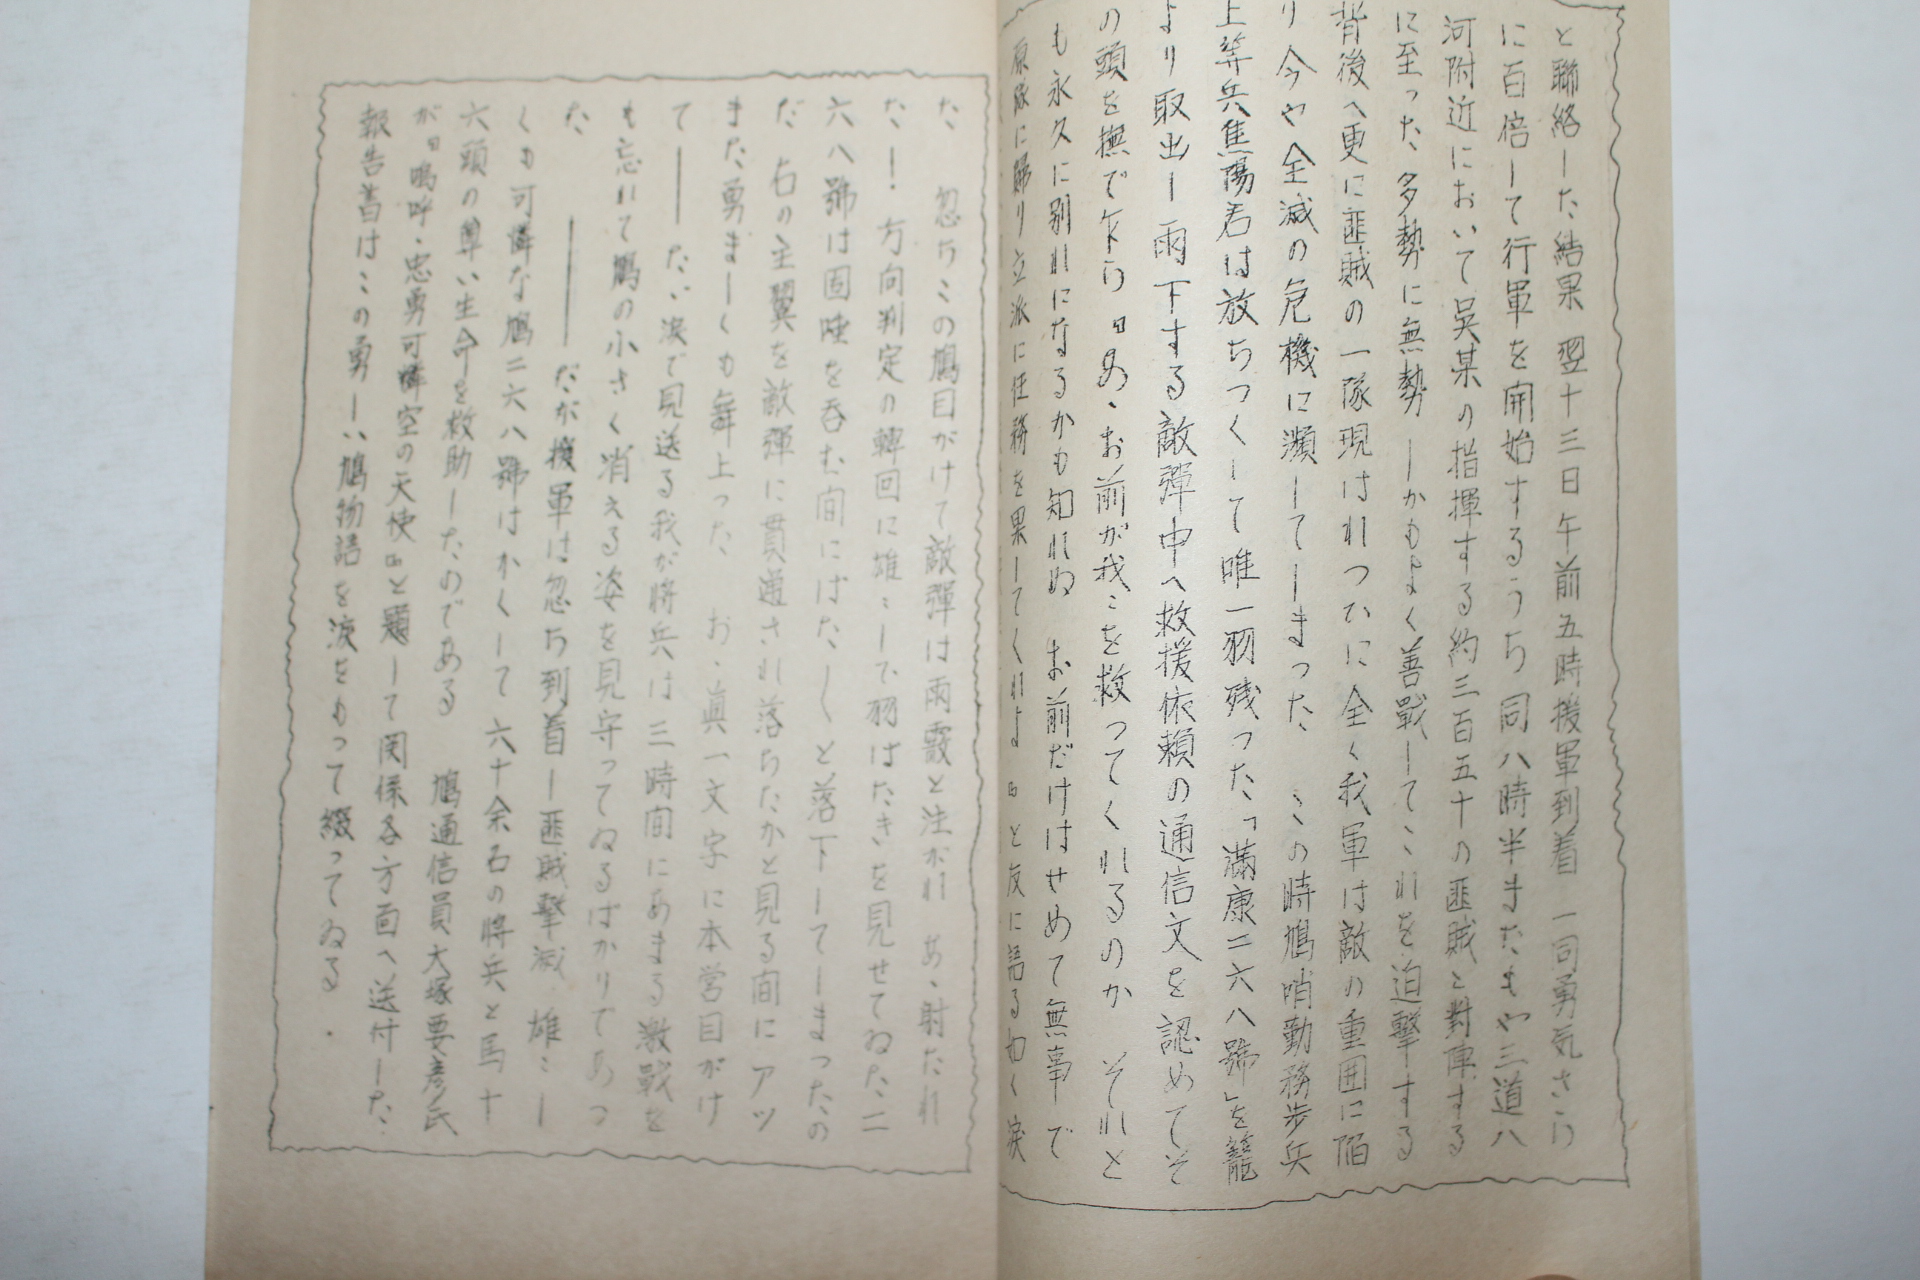 と聯絡した結果 翌十三日午前五時援軍到着 一同勇気さら
に百倍して行軍を開始するうち 同八時半またもや三道八
河附近において吴某の指揮する約三百五十の匪賊と對陣する
に至った 多勢に無勢 しかもよく善戰してこれを迫撃する
背後へ更に匪賊の一隊現はれつひに全く我軍は敵の重囲に陥
り今や全滅の危機に瀕してしまった、 この時鳩哨勤務歩兵
上等兵焦陽君は放ちつくして唯一羽残った「滿康二六八號」を籠
より取出し 雨下する敵彈中へ救援依頼の通信文を認めてそ
の頭を撫で乍ら『あゝお前が我々を救ってくれるのか それと
も永久に別れになるかも知れぬ お前だけはせめて無事で
原隊に歸り立派に任務を果してくれよ』と友に語る如く涙
た 忽ちこの鳩目がけて敵彈は雨霰と注がれ あゝ射たれ
た！ 方向判定の轉回に雄々しで羽はたきを見せてゐた二
六八號は固唾を呑む間にはたしくと落下してしまったの
だ 右の主翼を敵彈に貫通され落ちたかと見る間にアツ
また勇ましくも舞上った、 おゝ眞一文字に本営目がけ
て―― たゞ涙で見送る我が將兵は三時間にあまる激戰を
も忘れて鳩の小さく消える姿を見守ってゐるばかりであっ
た ―― だが援軍は忽ち到着し匪賊撃滅 雄々し
くも可憐な鳩二六八號はかくして 六十余名の將兵と馬十
六頭の尊い生命を救助したのである 鳩通信員大塚要彦氏
が『嗚呼・忠勇可憐空の天使』と題して関係各方面へ送付した
報告書はこの勇しい鳩物語を涙をもって綴ってゐる．